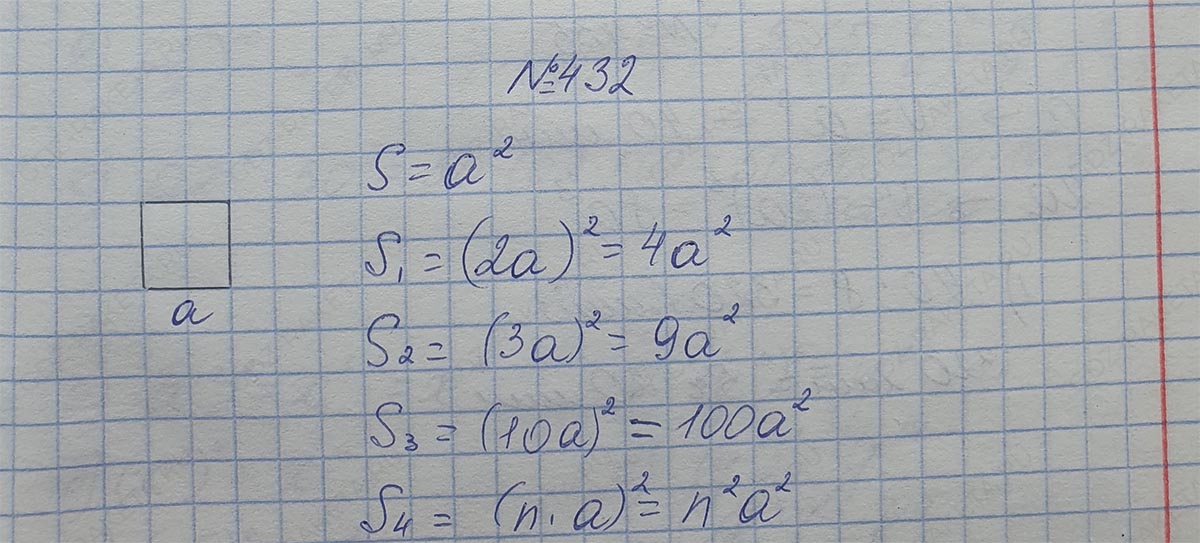 №432
S = a²
S₁ = (2a)² = 4a²
a
S₂ = (3a)² = 9a²
S₃ = (10a)² = 100a²
S₄ = (n · a)² = n²a²